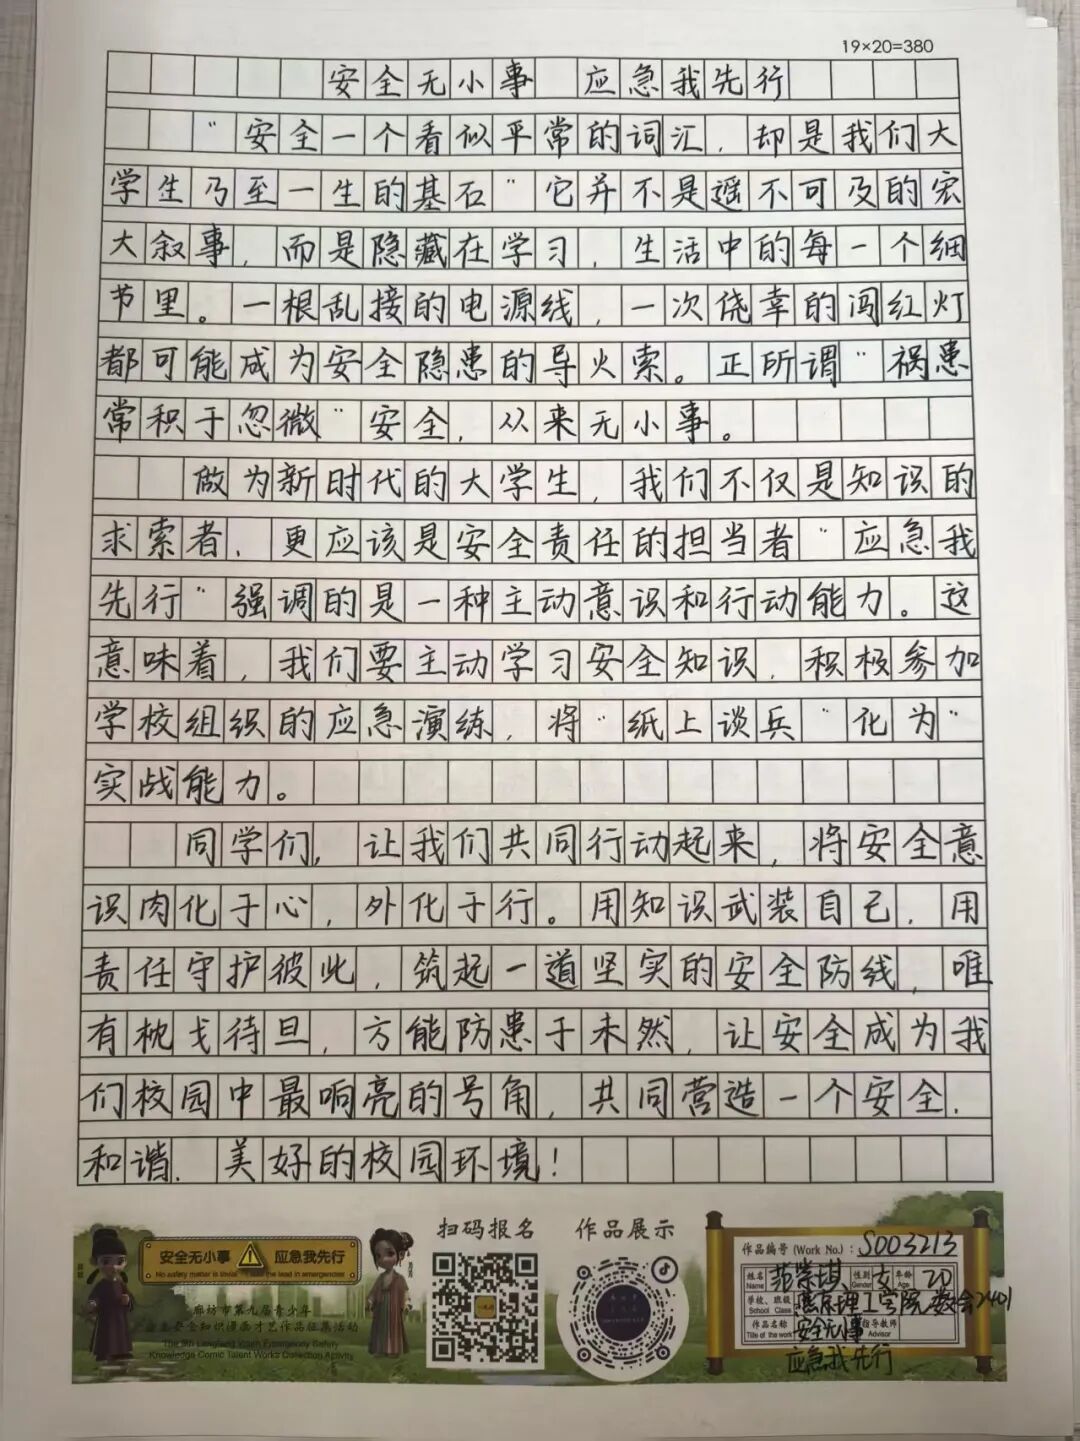 19×20=380
安全无小事 应急我先行
“安全一个看似平常的词汇，却是我们大
学生乃至一生的基石”它并不是遥不可及的宏
大叙事，而是隐藏在学习，生活中的每一个细
节里。一根乱接的电源线，一次侥幸的闯红灯
都可能成为安全隐患的导火索。正所谓“祸患
常积于忽微”安全，从来无小事。
做为新时代的大学生，我们不仅是知识的
求索者，更应该是安全责任的担当者“应急我
先行”强调的是一种主动意识和行动能力。这
意味着，我们要主动学习安全知识，积极参加
学校组织的应急演练，将“纸上谈兵”化为“
实战能力。
同学们，让我们共同行动起来，将安全意
识肉化于心，外化于行。用知识武装自己，用
责任守护彼此，筑起一道坚实的安全防线，唯
有枕戈待旦，方能防患于未然，让安全成为我
们校园中最响亮的号角，共同营造一个安全.
和谐.美好的校园环境！
扫码报名 作品展示
安全无小事 应急我先行
No safety matter is trivial Take the lead in emergencies
廊坊市第九届青少年
应急安全知识漫画才艺作品征集活动
The 9th Langfang Youth Emergency Safety
Knowledge Comic Talent Works Collection Activity
作品编号 (Work No.)：S003213
姓名 Name 崇琪 性别 Gender 女 年龄 Age 20
学校、班级 School Class 燕京理工学院 数会2401
作品名称 Title of the work 安全无小事 指导教师 Advisor
应急我先行